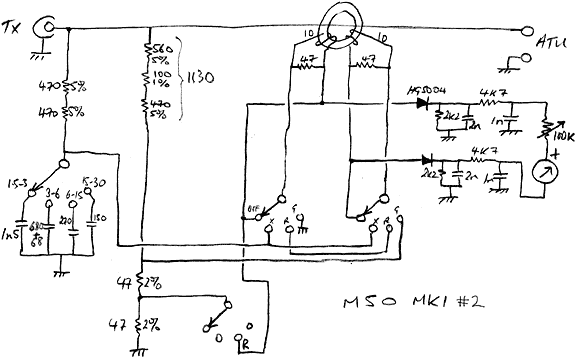 TX
10
10
ATU
560
5%
100
1%
470
5%
1130
470 5%
470 5%
47
47
HG5004
4K7
2K2
2n
1n
100K
+
4K7
2K2
2n
1n
1.5-3
3-6
6-15
15-30
1n5
680
+
68
270
150
X
R
G
X
R
G
47 2%
47 2%
0
0
R
M50 MK1 #2